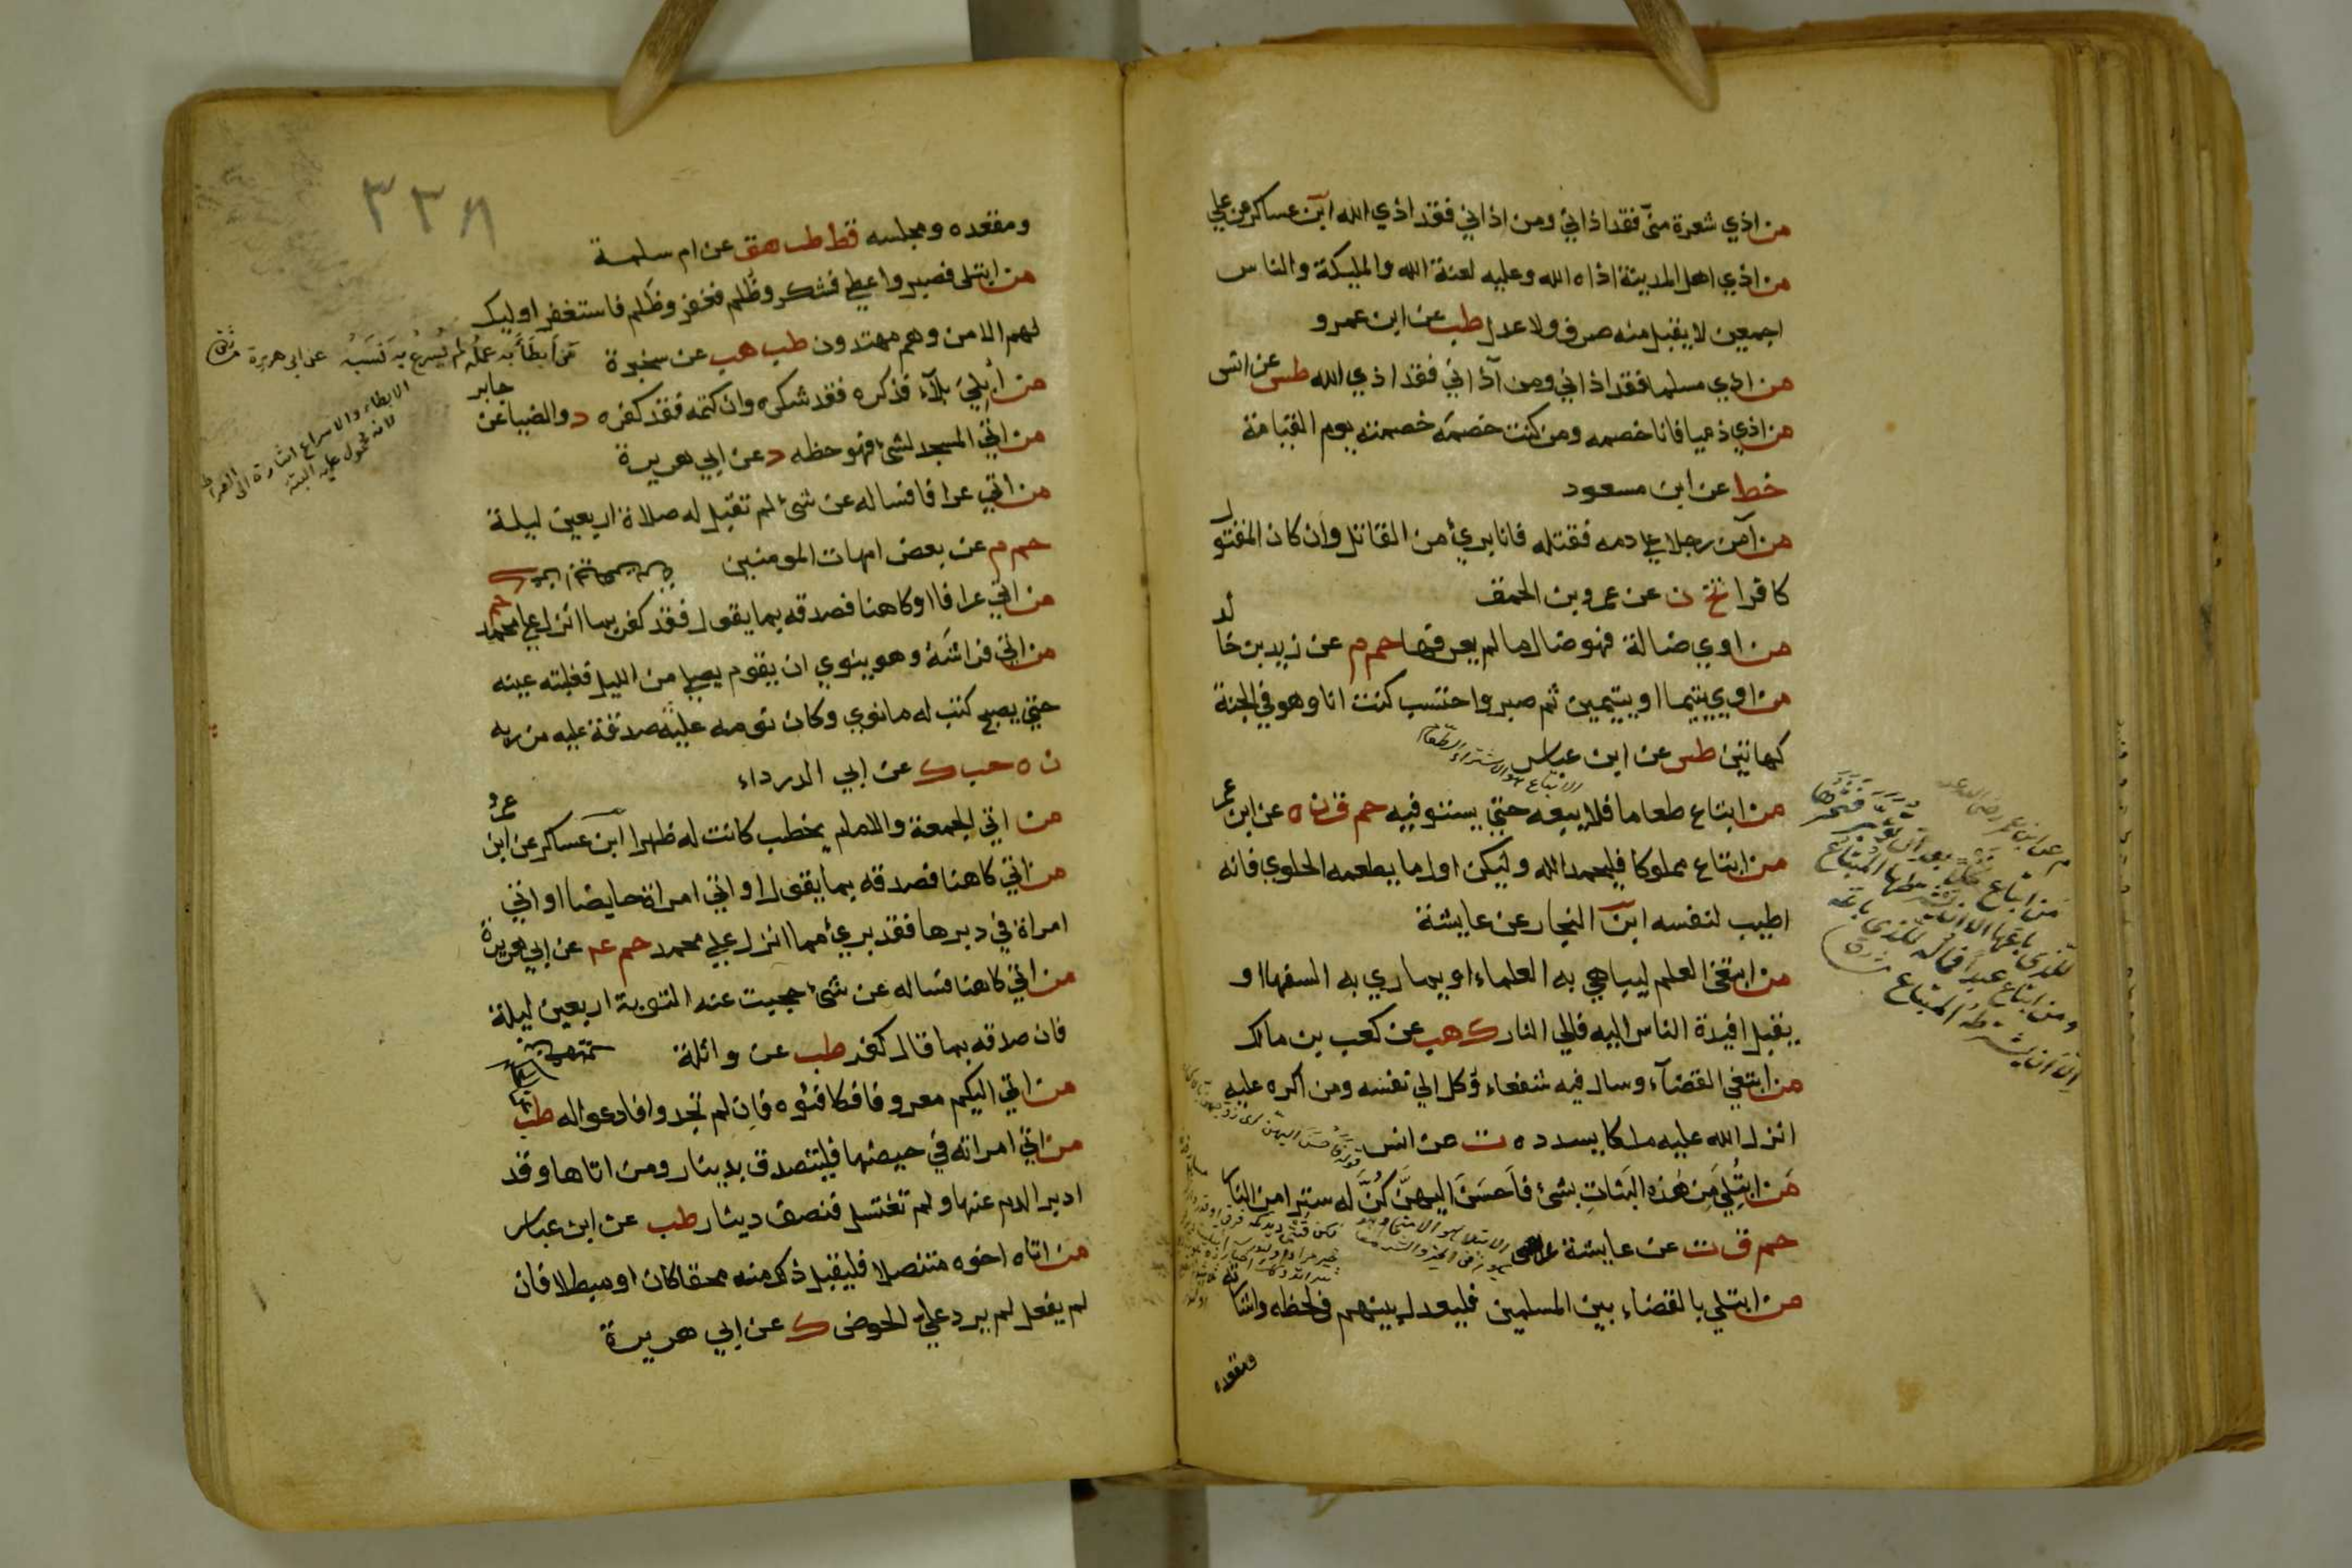 من اذي شعرة منّي فقد اذاني ومن اذاني فقد اذي الله ابن عساكر عن علي
من اذي اهل المدينة اذاه الله وعليه لعنة الله والمليكة والناس
اجمعين لا يقبل منه صرف ولا عدل طب عن ابن عمرو
من اذي مسلما فقد اذاني ومن آذاني فقد اذي الله طس عن انس
من اذي ذميا فانا خصمه ومن كنت خصمه خصمته يوم القيامة
خط عن ابن مسعود
من آمن رجلا علي دمه فقتله فانا بريء من القاتل وان كان المقتول
كافرا تخ ن عن عمرو بن الحمق
من اوي ضالة فهو ضال ما لم يعرفها حم م عن زيد بن خالد
من اوي يتيما او يتيمين ثم صبر واحتسب كنت انا وهو في الجنة
كهاتين طس عن ابن عباس
الابتياع هو الاشتراء الطعام
من ابتاع طعاما فلا يبعه حتي يستوفيه حم ق ن ه عن ابن عمر
من ابتاع مملوكا فليحمد الله وليكن اول ما يطعمه الحلوي فانه
اطيب لنفسه ابن النجار عن عايشة
من ابتغي العلم ليباهي به العلماء او يماري به السفها او
يقبل افيدة الناس اليه فالي النار ك هب عن كعب بن مالك
من ابتغي القضآء وسال فيه شفعاء وكل الي نفسه ومن اكره عليه
انزل الله عليه ملكا يسدده ت عن انس
مَن ابتُلِيَ مِن هٰذه البَنَاتِ بشئ فَاَحسَنَ اليهنَّ كُنَّ له سترا من النار
حم ق ت عن عايشة
من ابتلي بالقضاء بين المسلمين فليعدل بينهم في لحظه واشارته
ومقعده
م عن ابن عمر رضي الله عنه
من ابتاع نخلا بعد ان تؤبر فثمرتها
للذي باعها الا ان يشترطها المبتاع
ومن ابتاع عبدا فماله للذي باعه
الا ان يشترط المبتاع
٣٣٨
ومقعده ومجلسه قط طب هق عن ام سلمة
من ابتلي فصبر واعطي فشكر وظُلم فغفر وظَلم فاستغفر اوليك
لهم الامن وهم مهتدون طب هب عن سخبرة
من أبطَأَ به عملُه لم يُسرِع به نَسَبُه عن ابي هريرة
من أُبْلِيَ بلآء فذكره فقد شكره وان كتمه فقد كفره د والضيا عن جابر
الابطاء والاسراع اشارة الى الصراط
لانه محمول عليه البتة
من اتي المسجد لشئ فهو حظه د عن ابي هريرة
من اتي عرافا فساله عن شئ لم تقبل له صلاة اربعين ليلة
حم م عن بعض امهات المومنين
من اتي عرافا او كاهنا فصدقه بما يقول فقد كفر بما انزل علي محمد حم
من اتي فراشه وهو ينوي ان يقوم يصلي من الليل فغلبته عينه
حتي يصبح كتب له ما نوي وكان نومه عليه صدقة عليه من ربه
ن ه حب ك عن ابي الدرداء
من اتي الجمعة والامام يخطب كانت له ظهرا ابن عساكر عن ابن عمرو
من اتي كاهنا فصدقه بما يقول او اتي امراة حايضا او اتي
امراة في دبرها فقد بريء مما انزل علي محمد حم عم عن ابي هريرة
من اتي كاهنا فساله عن شئ حجبت عنه التوبة اربعين ليلة
فان صدقه بما قال كفر طب عن واثلة
من اتي اليكم معروفا فكافئوه فان لم تجدوا فادعوا له طب
من اتي امراته في حيضها فليتصدق بدينار ومن اتاها وقد
ادبر الدم عنها ولم تغتسل فنصف دينار طب عن ابن عباس
من اتاه اخوه متنصلا فليقبل ذلك منه محقا كان او مبطلا فان
لم يفعل لم يرد علي الحوض ك عن ابي هريرة